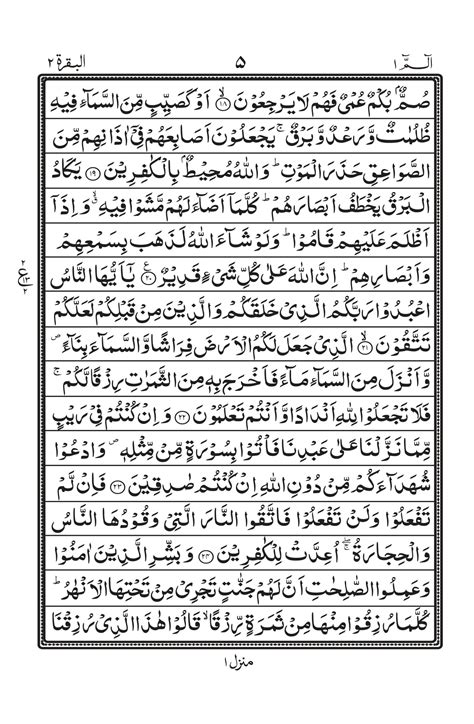 الٓمّٓ ١ ٥ البقرة ٢
صُمٌّۢ بُكْمٌ عُمْيٌ فَهُمْ لَا يَرْجِعُوْنَ ۙ﴿١٨﴾ اَوْ كَصَيِّبٍ مِّنَ السَّمَآءِ فِيْهِ
ظُلُمٰتٌ وَّرَعْدٌ وَّبَرْقٌ ۚ يَجْعَلُوْنَ اَصَابِعَهُمْ فِيْۤ اٰذَانِهِمْ مِّنَ
الصَّوَاعِقِ حَذَرَ الْمَوْتِ ؕ وَاللّٰهُ مُحِيْطٌۢ بِالْكٰفِرِيْنَ ﴿١٩﴾ يَكَادُ
الْبَرْقُ يَخْطَفُ اَبْصَارَهُمْ ؕ كُلَّمَاۤ اَضَآءَ لَهُمْ مَّشَوْا فِيْهِ ۙ وَاِذَاۤ
اَظْلَمَ عَلَيْهِمْ قَامُوْا ؕ وَلَوْ شَآءَ اللّٰهُ لَذَهَبَ بِسَمْعِهِمْ
وَاَبْصَارِهِمْ ؕ اِنَّ اللّٰهَ عَلٰى كُلِّ شَيْءٍ قَدِيْرٌ ﴿٢٠﴾ يٰۤاَيُّهَا النَّاسُ
اعْبُدُوْا رَبَّكُمُ الَّذِيْ خَلَقَكُمْ وَالَّذِيْنَ مِنْ قَبْلِكُمْ لَعَلَّكُمْ
تَتَّقُوْنَ ۙ﴿٢١﴾ الَّذِيْ جَعَلَ لَكُمُ الْاَرْضَ فِرَاشًا وَّالسَّمَآءَ بِنَآءً ۪
وَّاَنْزَلَ مِنَ السَّمَآءِ مَآءً فَاَخْرَجَ بِهٖ مِنَ الثَّمَرٰتِ رِزْقًا لَّكُمْ ۚ
فَلَا تَجْعَلُوْا لِلّٰهِ اَنْدَادًا وَّاَنْتُمْ تَعْلَمُوْنَ ﴿٢٢﴾ وَاِنْ كُنْتُمْ فِيْ رَيْبٍ
مِّمَّا نَزَّلْنَا عَلٰى عَبْدِنَا فَاْتُوْا بِسُوْرَةٍ مِّنْ مِّثْلِهٖ ۪ وَادْعُوْا
شُهَدَآءَكُمْ مِّنْ دُوْنِ اللّٰهِ اِنْ كُنْتُمْ صٰدِقِيْنَ ﴿٢٣﴾ فَاِنْ لَّمْ
تَفْعَلُوْا وَلَنْ تَفْعَلُوْا فَاتَّقُوا النَّارَ الَّتِيْ وَقُوْدُهَا النَّاسُ
وَالْحِجَارَةُ ۖۚ اُعِدَّتْ لِلْكٰفِرِيْنَ ﴿٢٤﴾ وَبَشِّرِ الَّذِيْنَ اٰمَنُوْا
وَعَمِلُوا الصّٰلِحٰتِ اَنَّ لَهُمْ جَنّٰتٍ تَجْرِيْ مِنْ تَحْتِهَا الْاَنْهٰرُ ؕ
كُلَّمَا رُزِقُوْا مِنْهَا مِنْ ثَمَرَةٍ رِّزْقًا ۙ قَالُوْا هٰذَا الَّذِيْ رُزِقْنَا
منزل ١